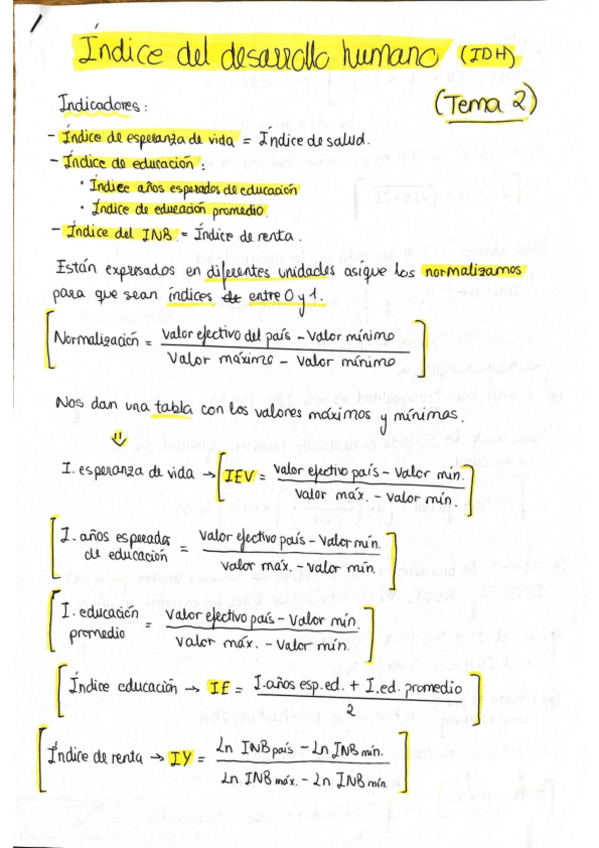 1
Índice del desarrollo humano (IDH)
(Tema 2)
Indicadores:
- Índice de esperanza de vida = Índice de salud.
- Índice de educación:
· Índice años esperados de educación
· Índice de educación promedio.
- Índice del INB = Índice de renta.
Están expresados en diferentes unidades asique los normalizamos
para que sean índices entre 0 y 1.
Normalización = Valor efectivo del país - Valor mínimo
Valor máximo - Valor mínimo
Nos dan una tabla con los valores máximos y mínimos.
I. esperanza de vida → IEV = Valor efectivo país - Valor mín.
Valor máx. - Valor mín.
I. años esperados de educación = Valor efectivo país - Valor mín.
Valor máx. - Valor mín.
I. educación promedio = Valor efectivo país - Valor mín.
Valor máx. - Valor mín.
Índice educación → IE = I.años esp.ed. + I.ed. promedio
2
Índice de renta → IY = Ln INB país - Ln INB mín.
Ln INB máx. - Ln INB mín